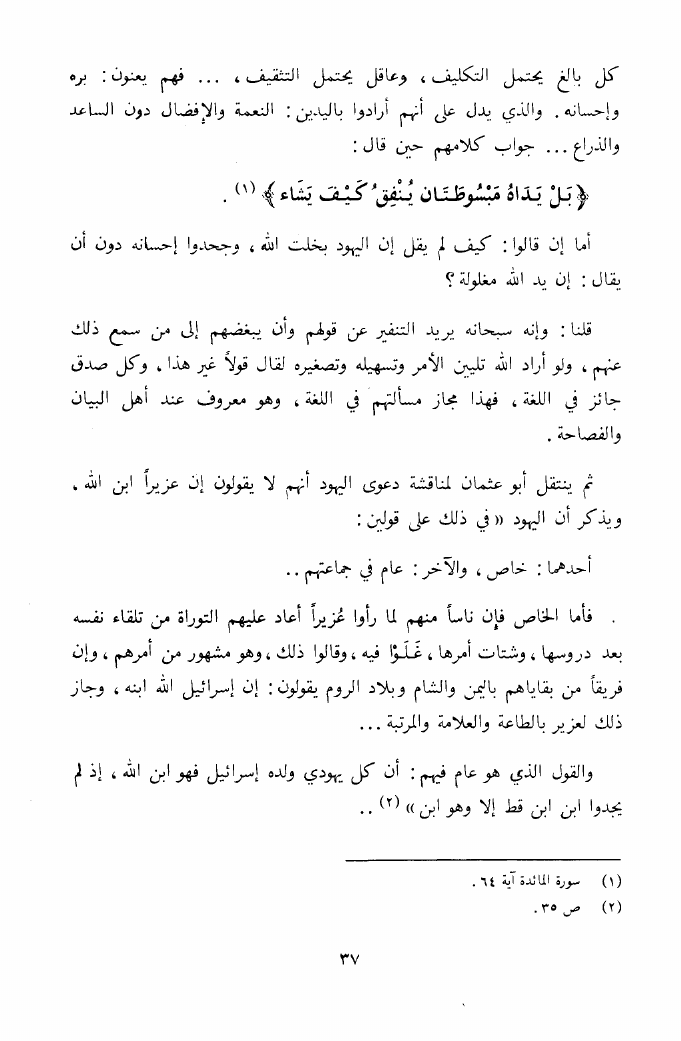 كل بالغ يحتمل التكليف، وعاقل يحتمل التثقيف، ... فهم يعنون: بره
وإحسانه. والذي يدل على أنهم أرادوا باليدين: النعمة والإفضال دون الساعد
والذراع... جواب كلامهم حين قال:
﴿بَلْ يَدَاهُ مَبْسُوطَتَان يُنْفِقُ كَيْفَ يَشَاء﴾ (١).
أما إن قالوا: كيف لم يقل إن اليهود بخلت الله، وجحدوا إحسانه دون أن
يقال: إن يد الله مغلولة؟
قلنا: وإنه سبحانه يريد التنفير عن قولهم وأن يبغضهم إلى من سمع ذلك
عنهم، ولو أراد الله تليين الأمر وتسهيله وتصغيره لقال قولاً غير هذا، وكل صدق
جائز في اللغة، فهذا مجاز مسألتهم في اللغة، وهو معروف عند أهل البيان
والفصاحة.
ثم ينتقل أبو عثمان لمناقشة دعوى اليهود أنهم لا يقولون إن عزيراً ابن الله،
ويذكر أن اليهود «في ذلك على قولين:
أحدهما: خاص، والآخر: عام في جماعتهم..
. فأما الخاص فإن ناساً منهم لما رأوا عُزيراً أعاد عليهم التوراة من تلقاء نفسه
بعد دروسها، وشتات أمرها، غَلَوْا فيه، وقالوا ذلك، وهو مشهور من أمرهم، وإن
فريقاً من بقاياهم باليمن والشام وبلاد الروم يقولون: إن إسرائيل الله ابنه، وجاز
ذلك لعزير بالطاعة والعلامة والمرتبة...
والقول الذي هو عام فيهم: أن كل يهودي ولده إسرائيل فهو ابن الله، إذ لم
يجدوا ابن ابن قط إلا وهو ابن» (٢)..
(١) سورة المائدة آية ٦٤.
(٢) ص ٣٥.
٣٧